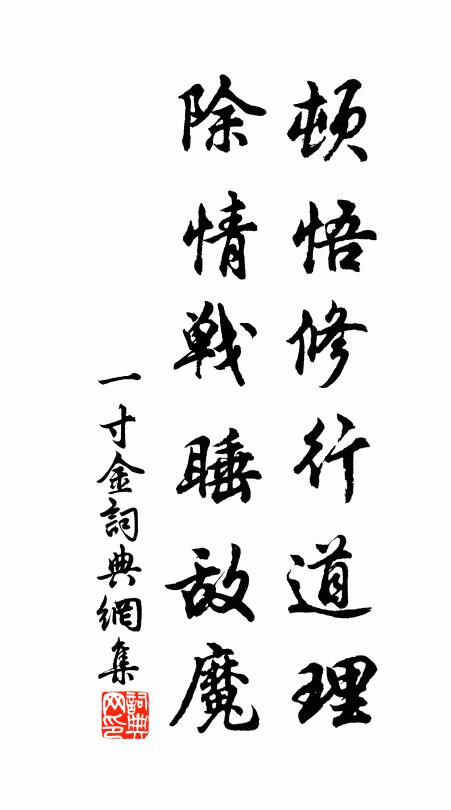 頓悟修行道理
除情戰睡敵魔
一寸金詞典網集
詞典網印